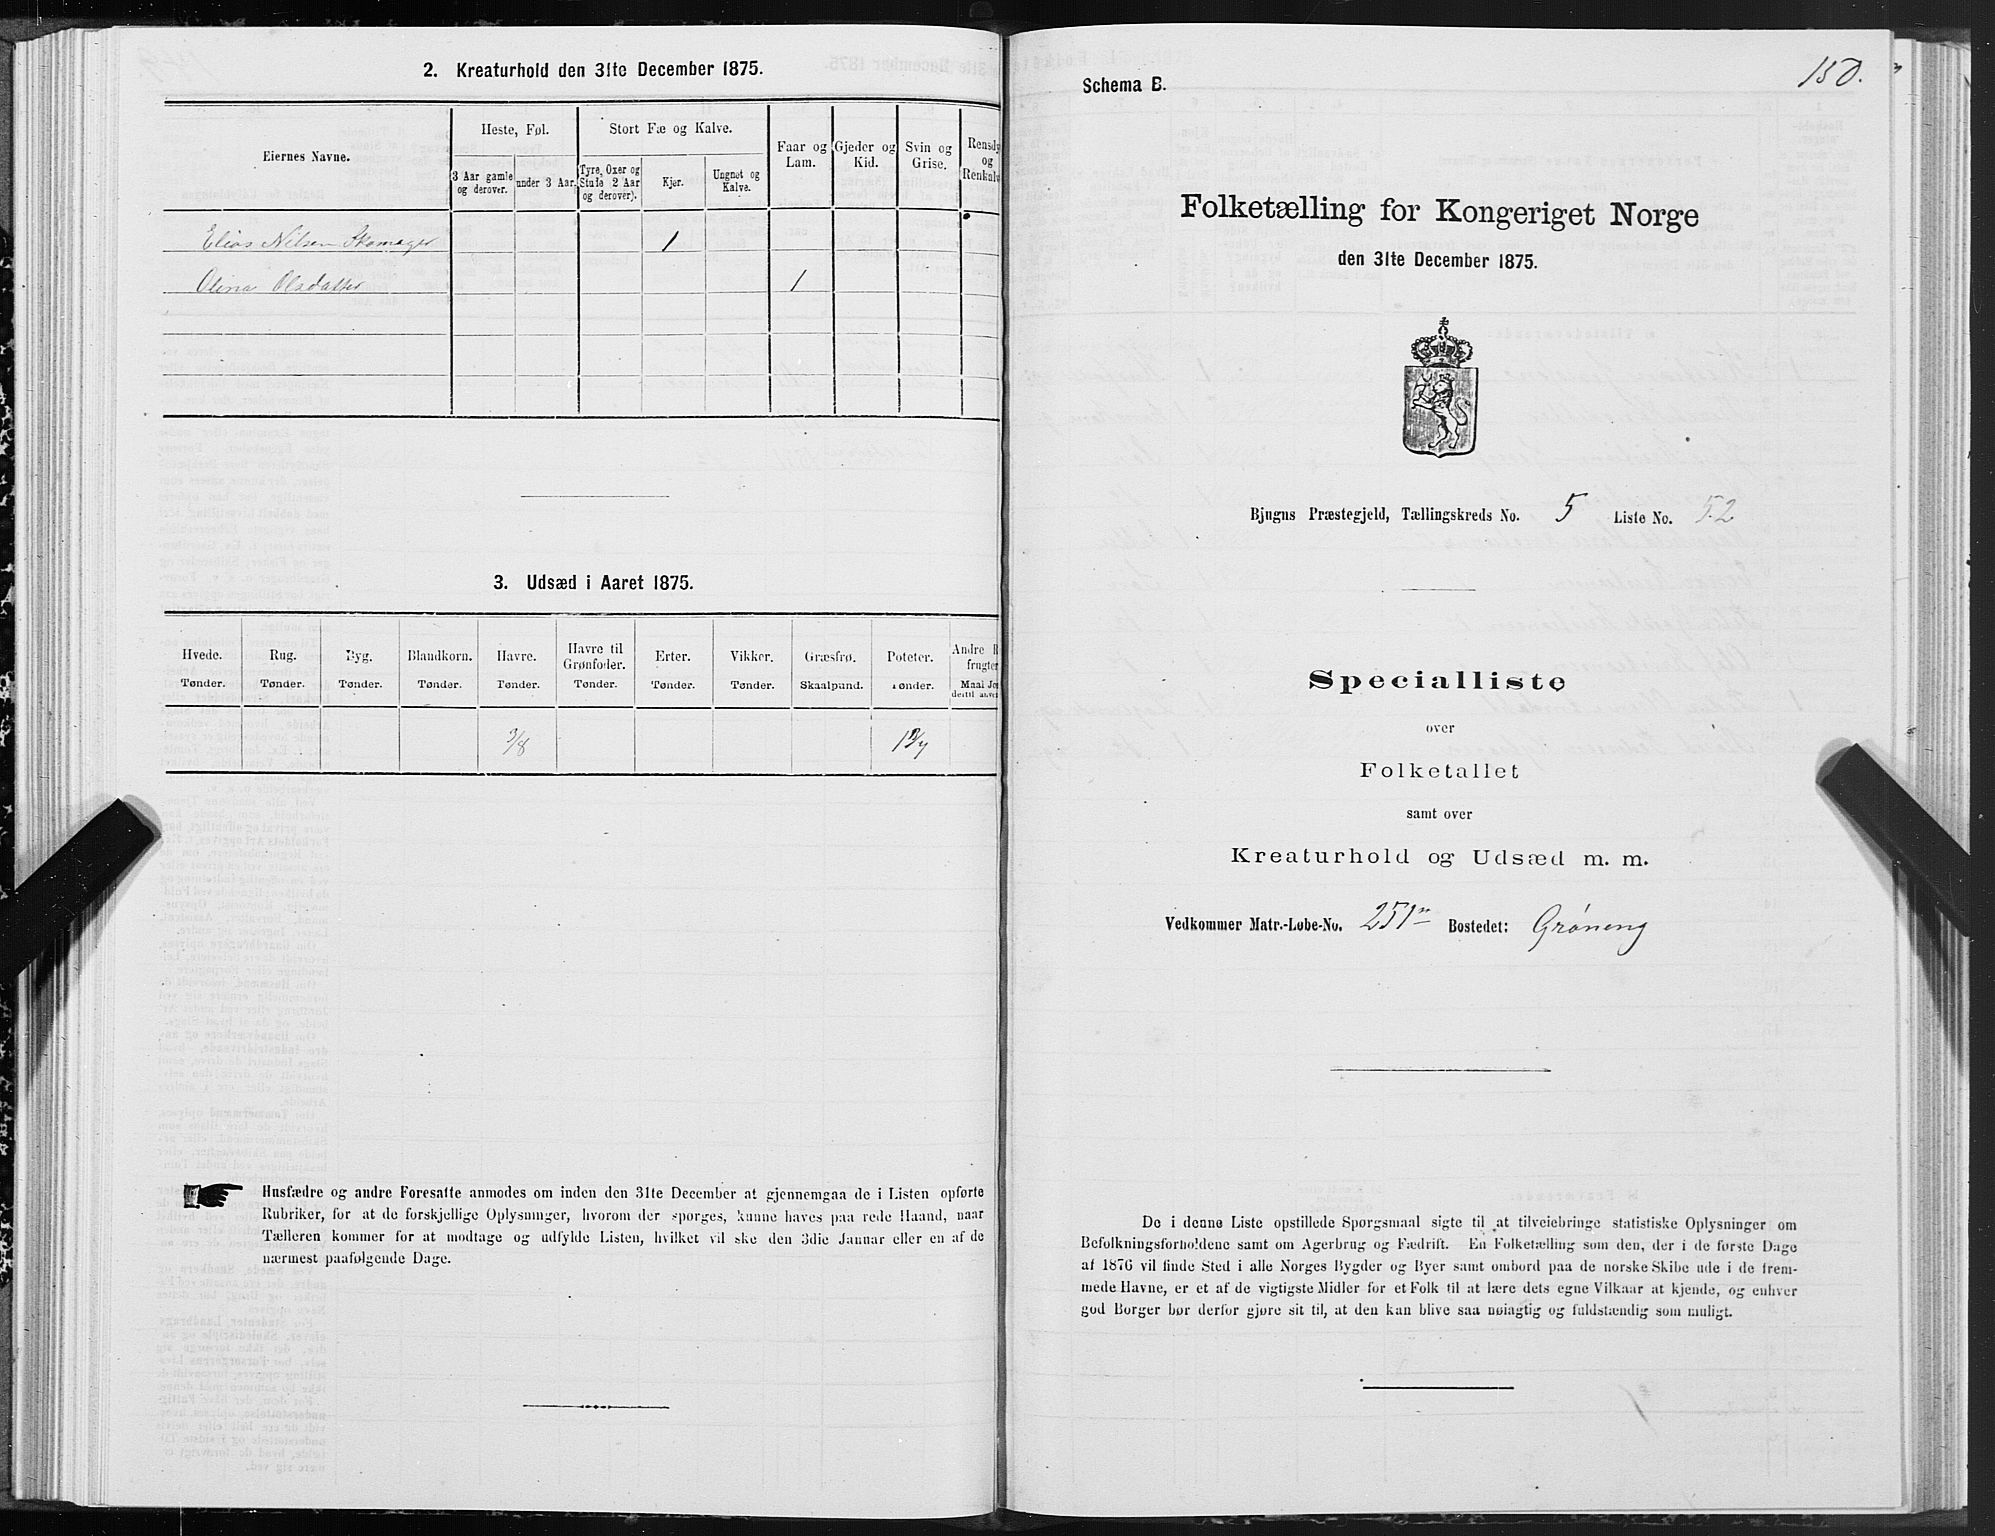 2. Kreaturhold den 31te December 1875.
Eiernes Navne.
Heste, Føl.
Stort Fæ og Kalve.
Faar og Lam.
Gjeder og Kid.
Svin og Grise.
Rensdy og Renkalv
3 Aar gamle og derover.
under 3 Aar.
Tyre, Oxer og Stude 2 Aar og derover).
Kjør.
Ungnøt og Kalve.
Elias Nilsen Skomager 1
Olina Olsdatter 1
3. Udsæd i Aaret 1875.
Hvede. Rug. Byg. Blandkorn. Havre. Havre til Grønfoder. Erter. Vikker. Græsfrø. Poteter. Andre R frugter
Tønder. Tønder. Tønder. Tønder. Tønder. Tønder. Tønder. Tønder. Skaalpund. Tønder. Maal Jo dertil anve
3/8
Husfædre og andre Foresatte anmodes om inden den 31te December at gjennemgaa de i Listen opførte
Rubriker, for at de forskjellige Oplysninger, hvorom der spørges, kunne haves paa rede Haand, naar
Tælleren kommer for at modtage og udfylde Listen, hvilket vil ske den 3die Januar eller en af de
nærmest paafølgende Dage.
150.
Schema B.
Folketælling for Kongeriget Norge
den 31te December 1875.
Bjugns Præstegjeld, Tællingskreds No. 5 Liste No. 52
Specialliste
over
Folketallet
samt over
Kreaturhold og Udsæd m. m.
Vedkommer Matr.-Løbe-No. 251n Bostedet: Grøneng
De i denne Liste opstillede Spørgsmaal sigte til at tilveiebringe statistiske Oplysninger om
Befolkningsforholdene samt om Agerbrug og Fædrift. En Folketælling som den, der i de første Dage
af 1876 vil finde Sted i alle Norges Bygder og Byer samt ombord paa de norske Skibe ude i de frem-
mede Havne, er et af de vigtigste Midler for et Folk til at lære dets egne Vilkaar at kjende, og enhver
god Borger bør derfor gjøre sit til, at den kan blive saa nøiagtig og fuldstændig som muligt.